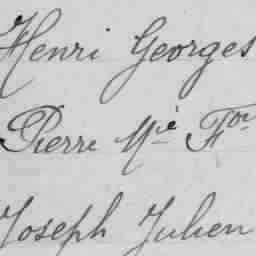 Henri Georges
Pierre Mie Fois
Joseph Julien